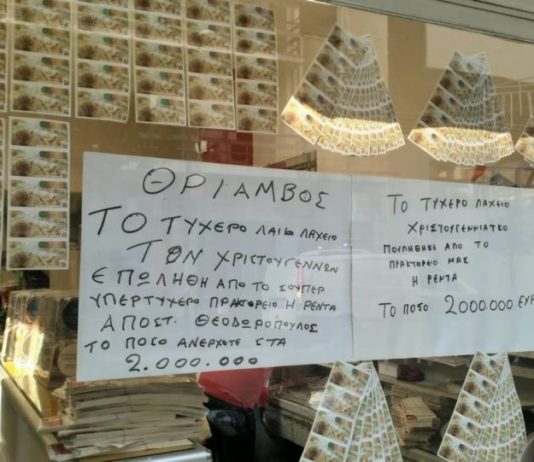 ΘΡΙΑΜΒΟΣ
ΤΟ ΤΥΧΕΡΟ ΛΑΙΚΟ ΛΑΧΕΙΟ
ΤΩΝ ΧΡΙΣΤΟΥΓΕΝΝΩΝ
ΕΠΩΛΗΘΗ ΑΠΟ ΤΟ ΣΟΥΠΕΡ
ΥΠΕΡΤΥΧΕΡΟ ΠΡΑΚΤΟΡΕΙΟ Η ΡΕΝΤΑ
ΑΠΟΣΤ. ΘΕΟΔΩΡΟΠΟΥΛΟΣ
ΤΟ ΠΟΣΟ ΑΝΕΡΧΕΤΕ ΣΤΑ
2.000.000
ΤΟ ΤΥΧΕΡΟ ΛΑΧΕΙΟ
ΧΡΙΣΤΟΥΓΕΝΝΙΑΤΚΟ
ΠΟΥΛΗΘΗΚΕ ΑΠΟ ΤΟ
ΠΡΑΚΤΟΡΕΙΟ ΜΑΣ
Η ΡΕΝΤΑ
ΤΟ ΠΟΣΟ 2000.000 ΕΥΡ